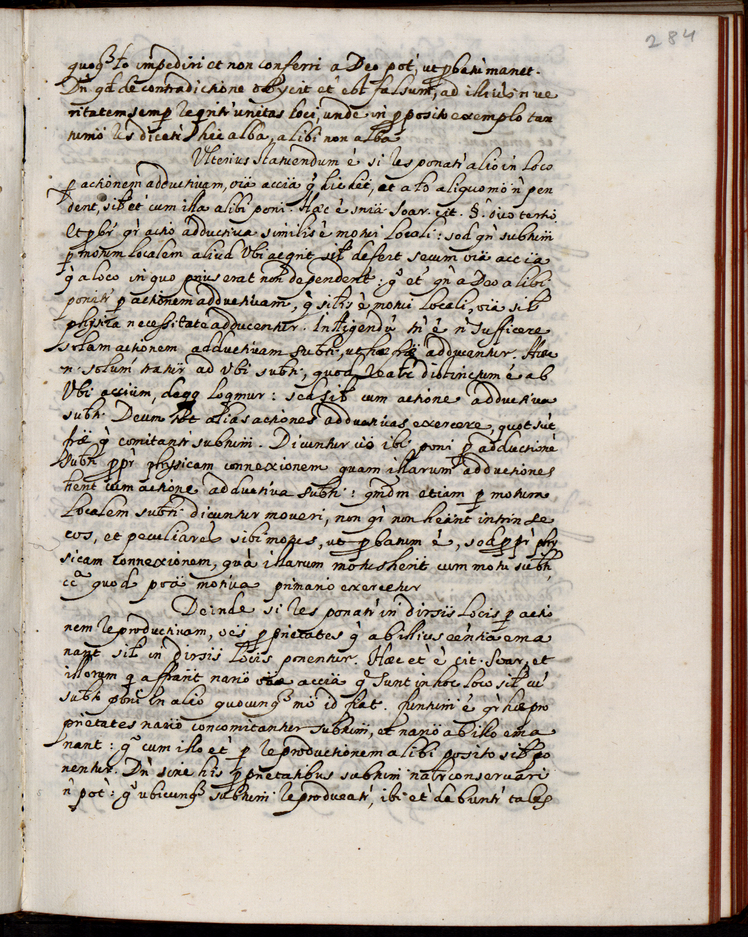 284
quoq̃ lo impediri et non conferri a Deo pot', ut ꝓbatũ manet.
Dn qd de contradictione obijcit et' est falsum, ad illius n ve
ritatem semp reqrit' unitas loci, unde in ꝓposito exemplo tan
tumo res diceti' hic alba, alibi non alba
Ulterius statuendum ẽ si res ponati' alio in loco
ꝑ actionem adductivam, oia accia q̃ hic hẽt, et a lo aliquomo ñ pen
dent, sił et' cum illa alibi poni. Hæc ẽ snia Soar. cit. §. dico tertio.
Et pbr' qr' actio adductiva similis ẽ motui locali: sed qn' subtum
ꝑ motum localem aliud Ubi acqrit sił defert secum oia accia
q̃ a loco in quo prius erat non dependent: gͦ et' qn' a Deo alibi
poniti' ꝑ actionem adductivam, q̃ silis ẽ motui locali, oia sił
physica necessitate adducentur. Intligendũ tn' ẽ ñ sufficere
solam actionem adductivam subti, ut hæ adducantur. Hæc
n' solum tratur ad Ubi subti, quod realr' distinctum ẽ ab
Ubi accium, de qo loqmur: sed sił cum actione adductiva
subti Deum alias actiones adductivas exercere, quot sũt
fræ q̃ comitanti' subtum. Dicuntur v̊o ibi poni ꝑ adductionẽ
subti ꝓpr' physicam connexionem quam illarum adductiones
hent cum actione adductiva subti: qmdm etiam ꝑ motum
localem subti dicuntur moveri, non qr' non heant intrinse
cos, et peculiares sibi motus, ut ꝓbatum ẽ, sed ꝓpr' phy
sicam connexionem, quã illarum motus herit cum motu subti,
cc̃a quod poã motiva primario exercetur
Deinde si res ponati' in dirsis locis ꝑ actio
nem reproductivam, oes ꝓprietates q̃ ab illius eẽntia ema
nant sił in dirsis locis ponentur. Hæc et' ẽ cit. Soar, et
illorum q affrant nario accia q̃ sunt in hoc loco sił cũ
subto poni in alio quocunq̃ mo id fiat. Funtum ẽ qr' hæ pro
prietates nario concomitantur subtum, et nario ab illo ema
nant: gͦ cum illo et' ꝑ reproductionem alibi posito sił po
nentur. Dn' sine his ꝓprietatibus subtum natr' conservari
ñ pot': gͦ ubicunq̃ subtum reproducati', ibi et' debunti' tales